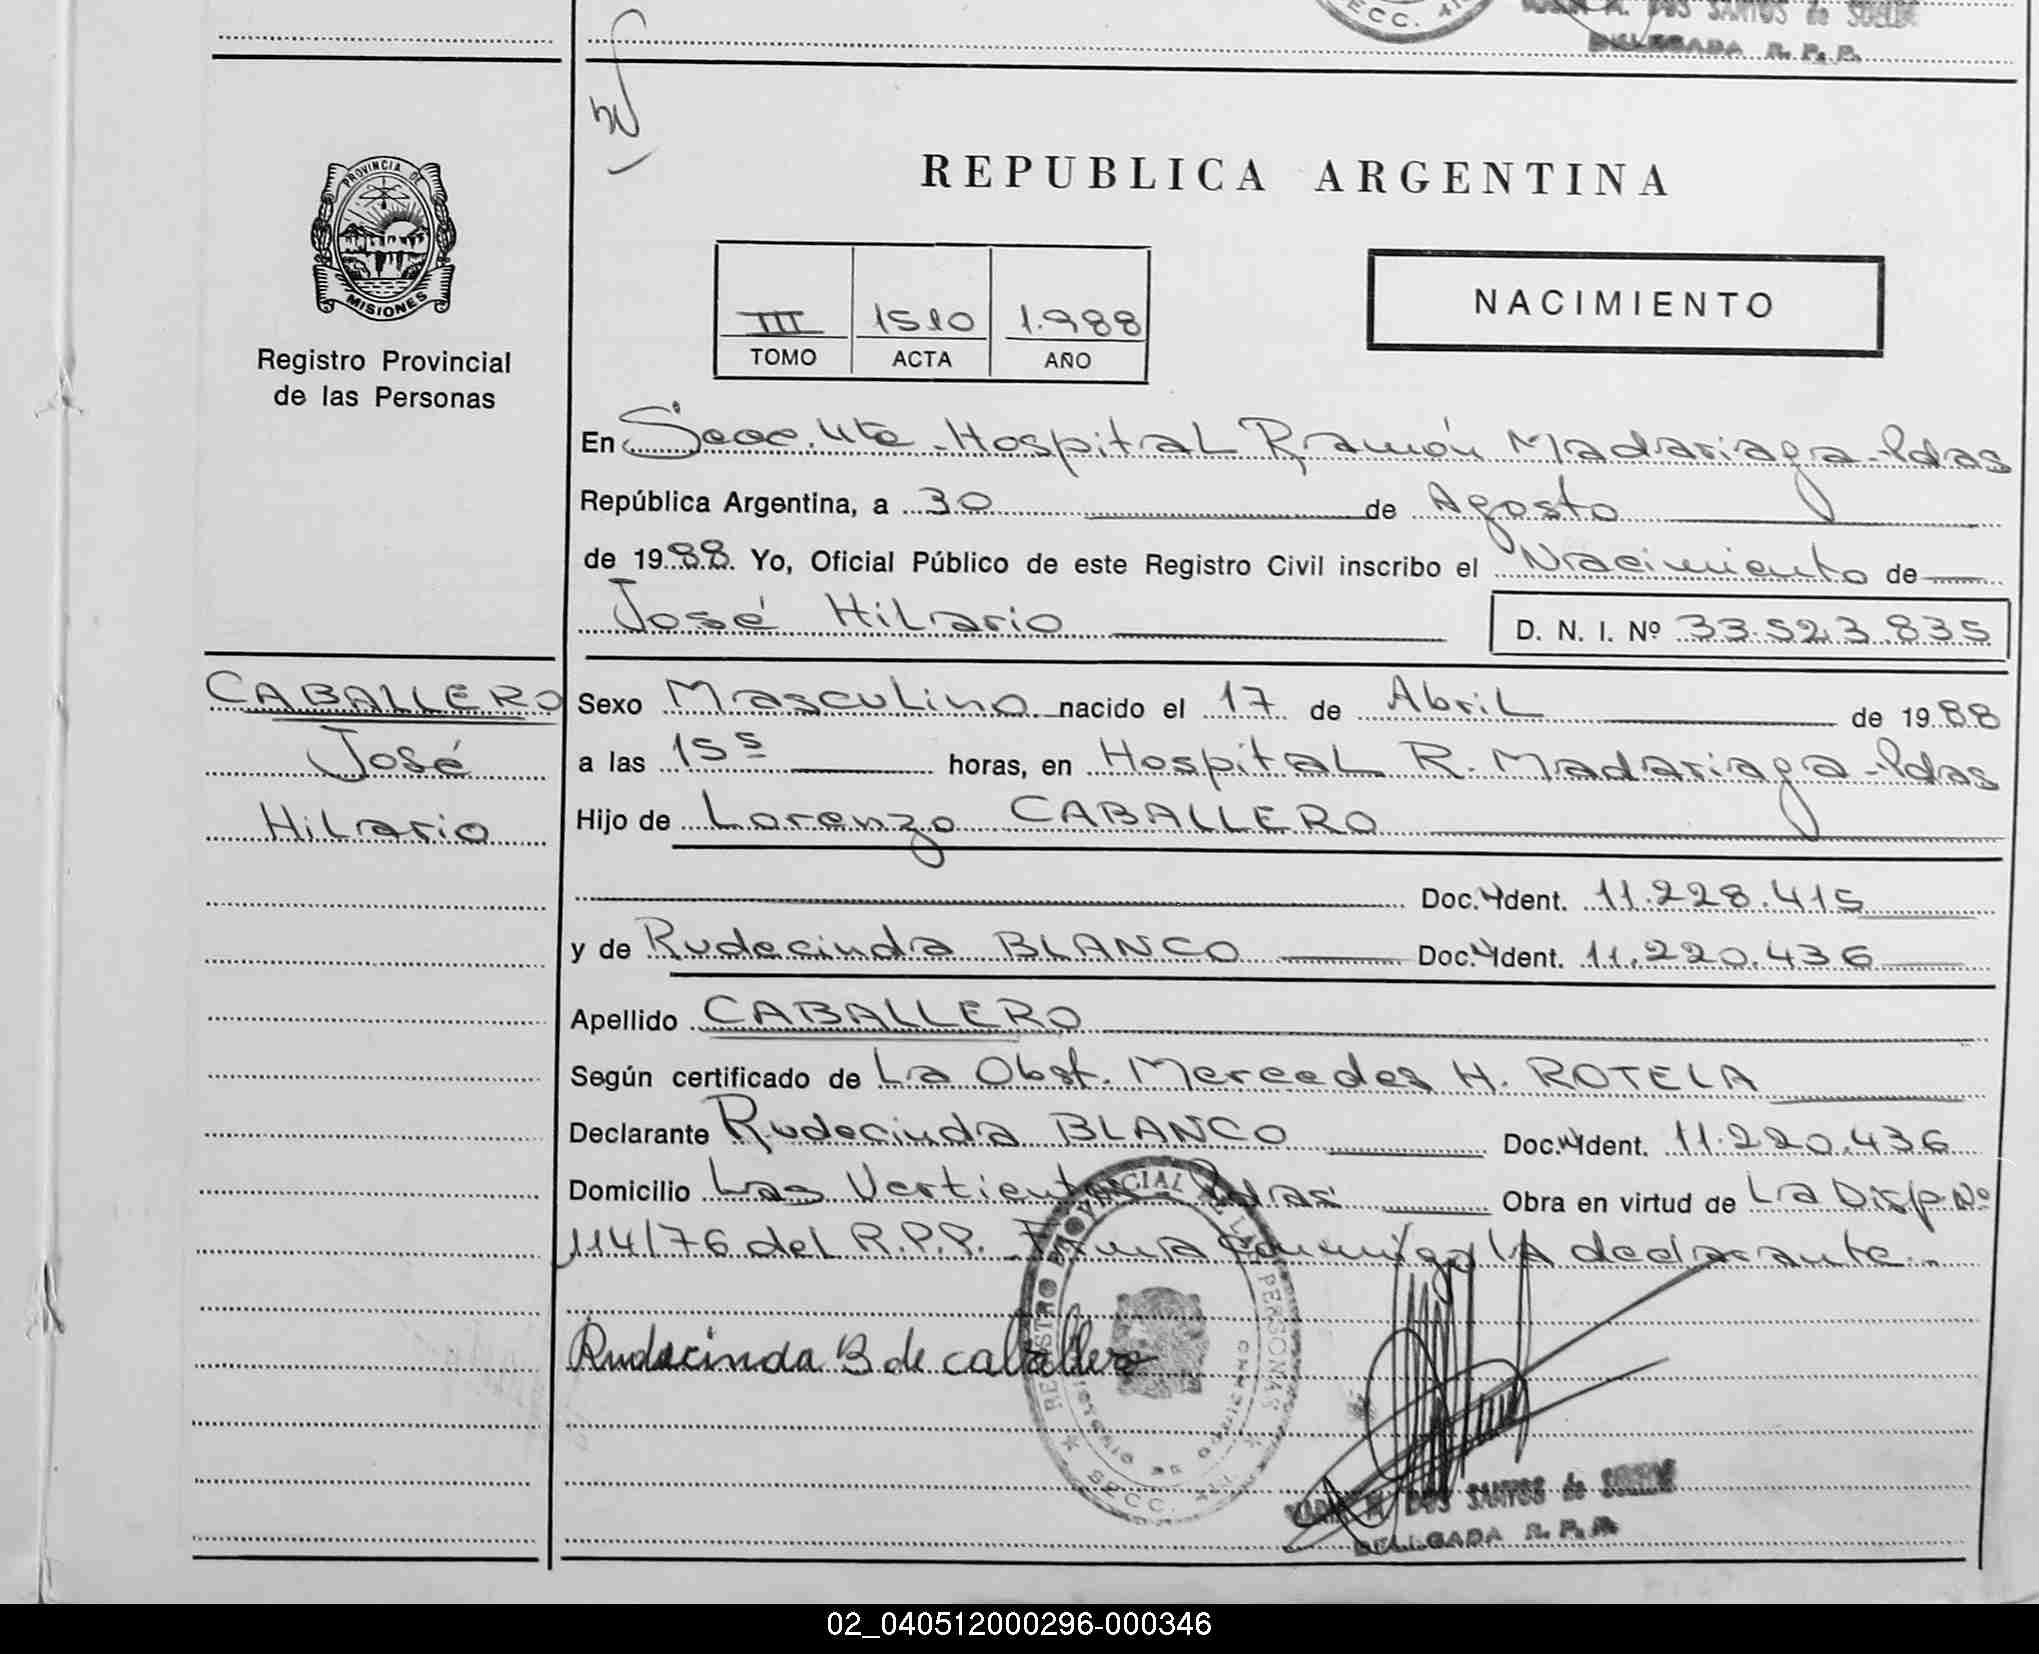 SECC.
DOS SANTOS de
DELEGADA R. P. P.
PROVINCIA DE
MISIONES
Registro Provincial
de las Personas
REPUBLICA ARGENTINA
III 1510 1.988
TOMO ACTA AÑO
NACIMIENTO
En Secc. 4ta - Hospital Ramón Madariaga - Pdas
República Argentina, a 30 de Agosto
de 1988. Yo, Oficial Público de este Registro Civil inscribo el Nacimiento de
José Hilario D. N. I. Nº 33.523.835
CABALLERO
José
Hilario
Sexo Masculino nacido el 17 de Abril de 1988
a las 15⁵ horas, en Hospital R. Madariaga - Pdas
Hijo de Lorenzo CABALLERO
Doc. Ident. 11.228.415
y de Rudecinda BLANCO Doc. Ident. 11.220.436
Apellido CABALLERO
Según certificado de La Obst. Mercedes H. ROTELA
Declarante Rudecinda BLANCO Doc. Ident. 11.220.436
Domicilio Las Vertientes - Pdas Obra en virtud de La Disp. Nº
114/76 del R.P.P. Firma conmigo la declarante.-
Rudecinda B de caballero
REGISTRO PROVINCIAL DE LAS PERSONAS
SECC.
DOS SANTOS de
DELEGADA R. P. P.
02_040512000296-000346